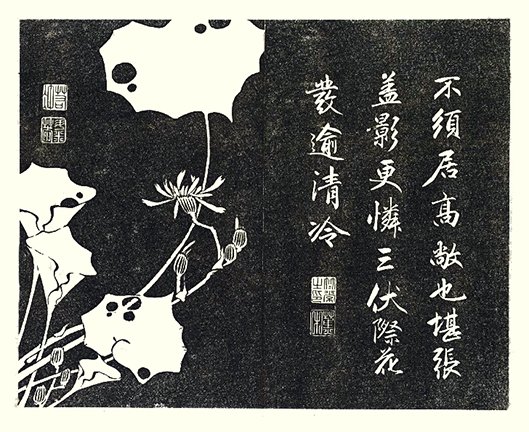 不須居高敞也堪張
盖影更憐三伏際花
發逾清冷